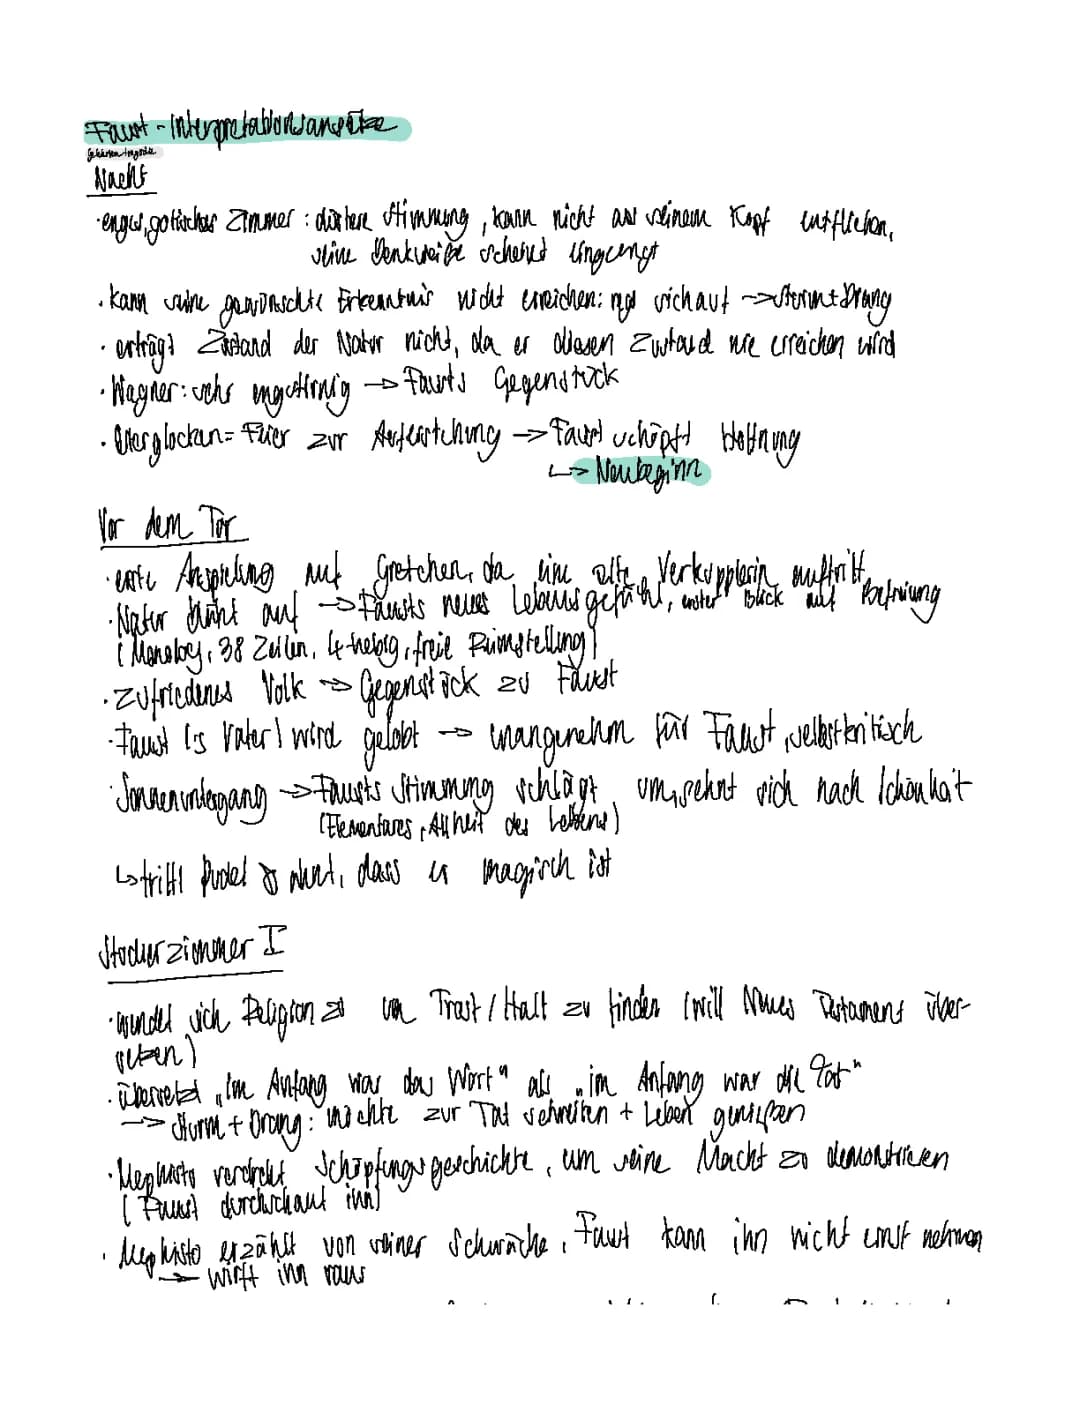 Faust - Interpretationsansätze
Gelehrtentragödie
Nacht
· enges, gotisches Zimmer : düstere Stimmung, kann nicht aus seinem Kopf entfliehen,
seine Denkweise scheint eingeengt
· kann seine gewünschte Erkenntnis nicht erreichen: regt sich auf -> Sturm + Drang
· erträgt Zustand der Natur nicht, da er diesen Zustand nie erreichen wird
· Wagner: sehr engstirnig -> Fausts Gegenstück
· Osterglocken = Feier zur Auferstehung -> Faust schöpft Hoffnung
↳ Neubeginn
Vor dem Tor
· erste Anspielung auf Gretchen, da eine alte Verkupplerin auftritt
· Natur blüht auf -> Fausts neues Lebensgefühl, erster Blick auf Befreiung
(Monolog, 38 Zeilen, 4-hebig, freie Reimstellung)
· zufriedenes Volk -> Gegenstück zu Faust
· Faust ('s Vater) wird gelobt -> unangenehm für Faust, selbstkritisch
· Sonnenuntergang -> Fausts Stimmung schlägt um, sehnt sich nach Schönheit
(Elementares, Allheit des Lebens)
↳ trifft Pudel & ahnt, dass er magisch ist
Studierzimmer I
· wendet sich Religion zu um Trost / Halt zu finden (will Neues Testament über-
setzen)
· übersetzt „Im Anfang war das Wort" als „im Anfang war die Tat"
-> Sturm + Drang: möchte zur Tat schreiten + Leben genießen
· Mephisto verdreht Schöpfungsgeschichte, um seine Macht zu demonstrieren
(Faust durchschaut ihn)
· Mephisto erzählt von seiner Schwäche, Faust kann ihn nicht ernst nehmen
-> wirft ihn raus